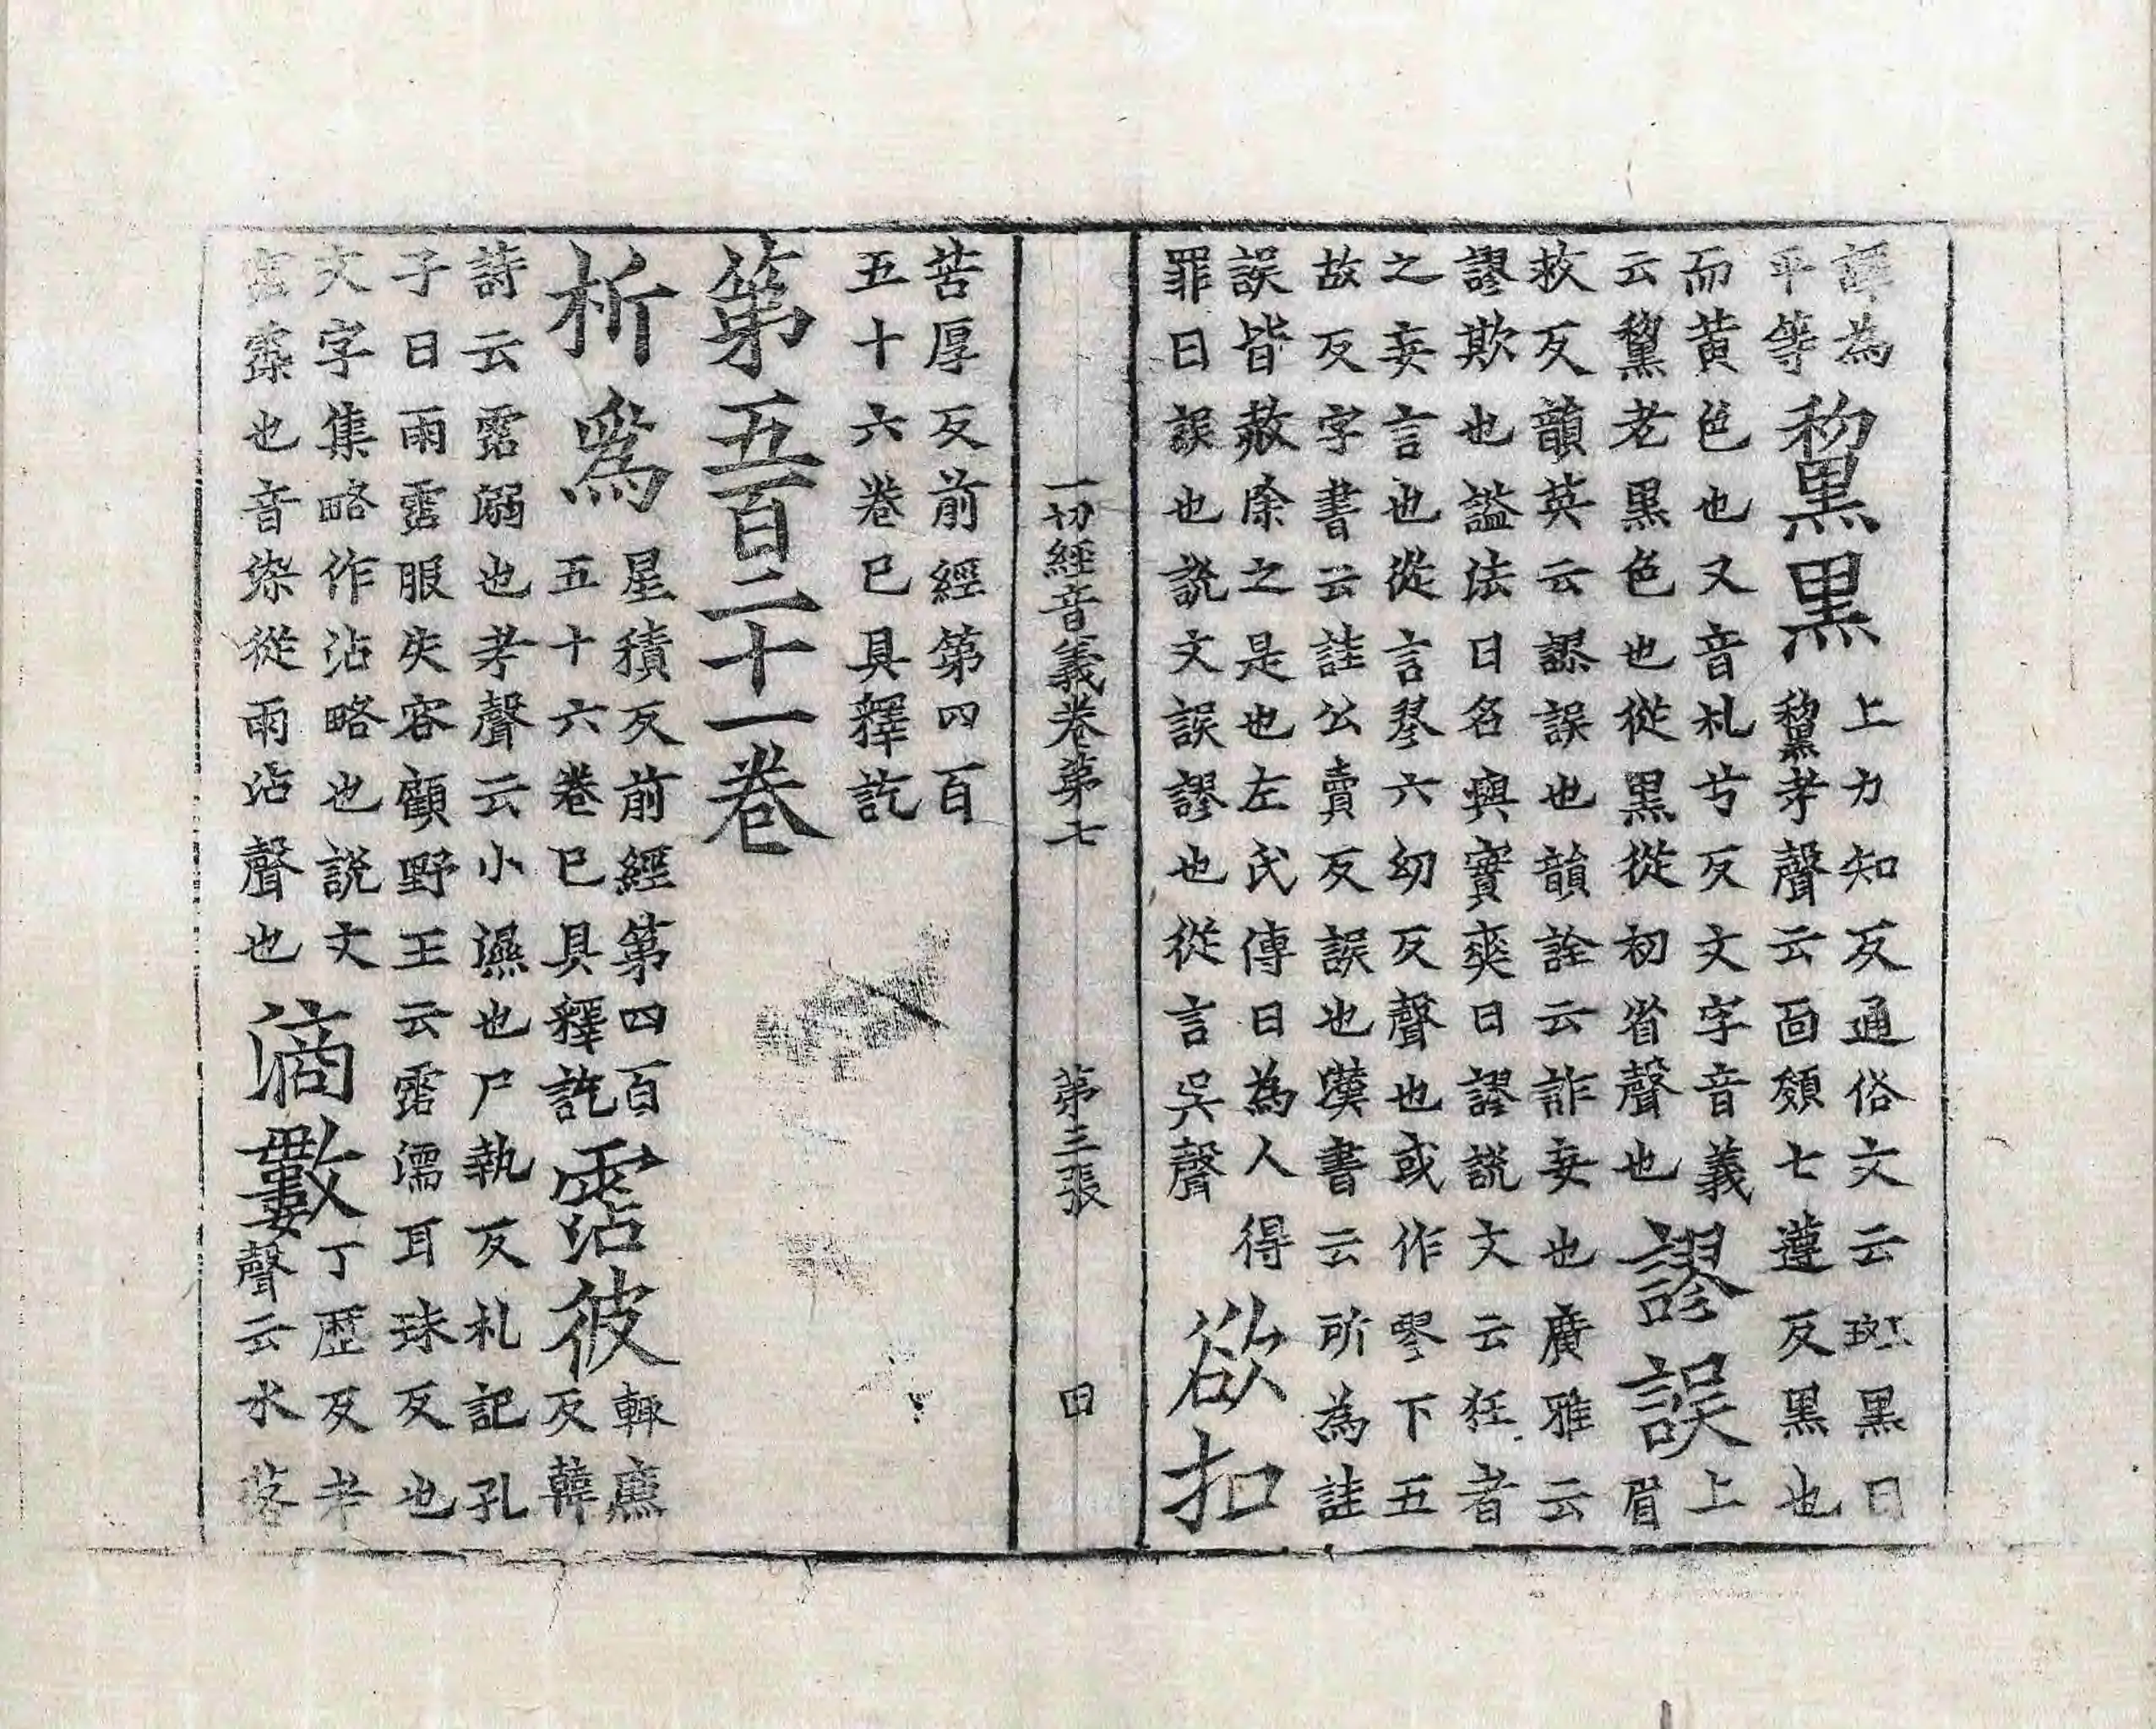 譯為
平等
黧黑
上力知反通俗文云斑黑曰
黧考聲云面顇七遵反黑也
而黃色也又音札兮反文字音義
云黧老黑色也從黑從初省聲也
謬誤
上
眉
救反韻英云謬誤也韻詮云詐妄也廣雅云
謬欺也謚法曰名與實爽曰謬說文云狂者
之妄言也從言翏六幼反聲也或作㝋下五
故反字書云詿公賣反誤也漢書云所為詿
誤皆赦除之是也左氏傳曰為人得
罪曰誤也說文誤謬也從言吳聲
欲扣
一切經音義卷第七 第三張 田
苦厚反前經第四百
五十六卷已具釋訖
第五百二十一卷
析爲
星積反前經第四百
五十六卷已具釋訖
霑彼
輒廉
反韓
詩云霑溺也考聲云小濕也尸執反札記孔
子曰雨霑服失容顧野王云霑濡耳珠反也
文字集略作沾略也說文
霑䨙也音染從雨沾聲也
滴數
丁歷反考
聲云水落